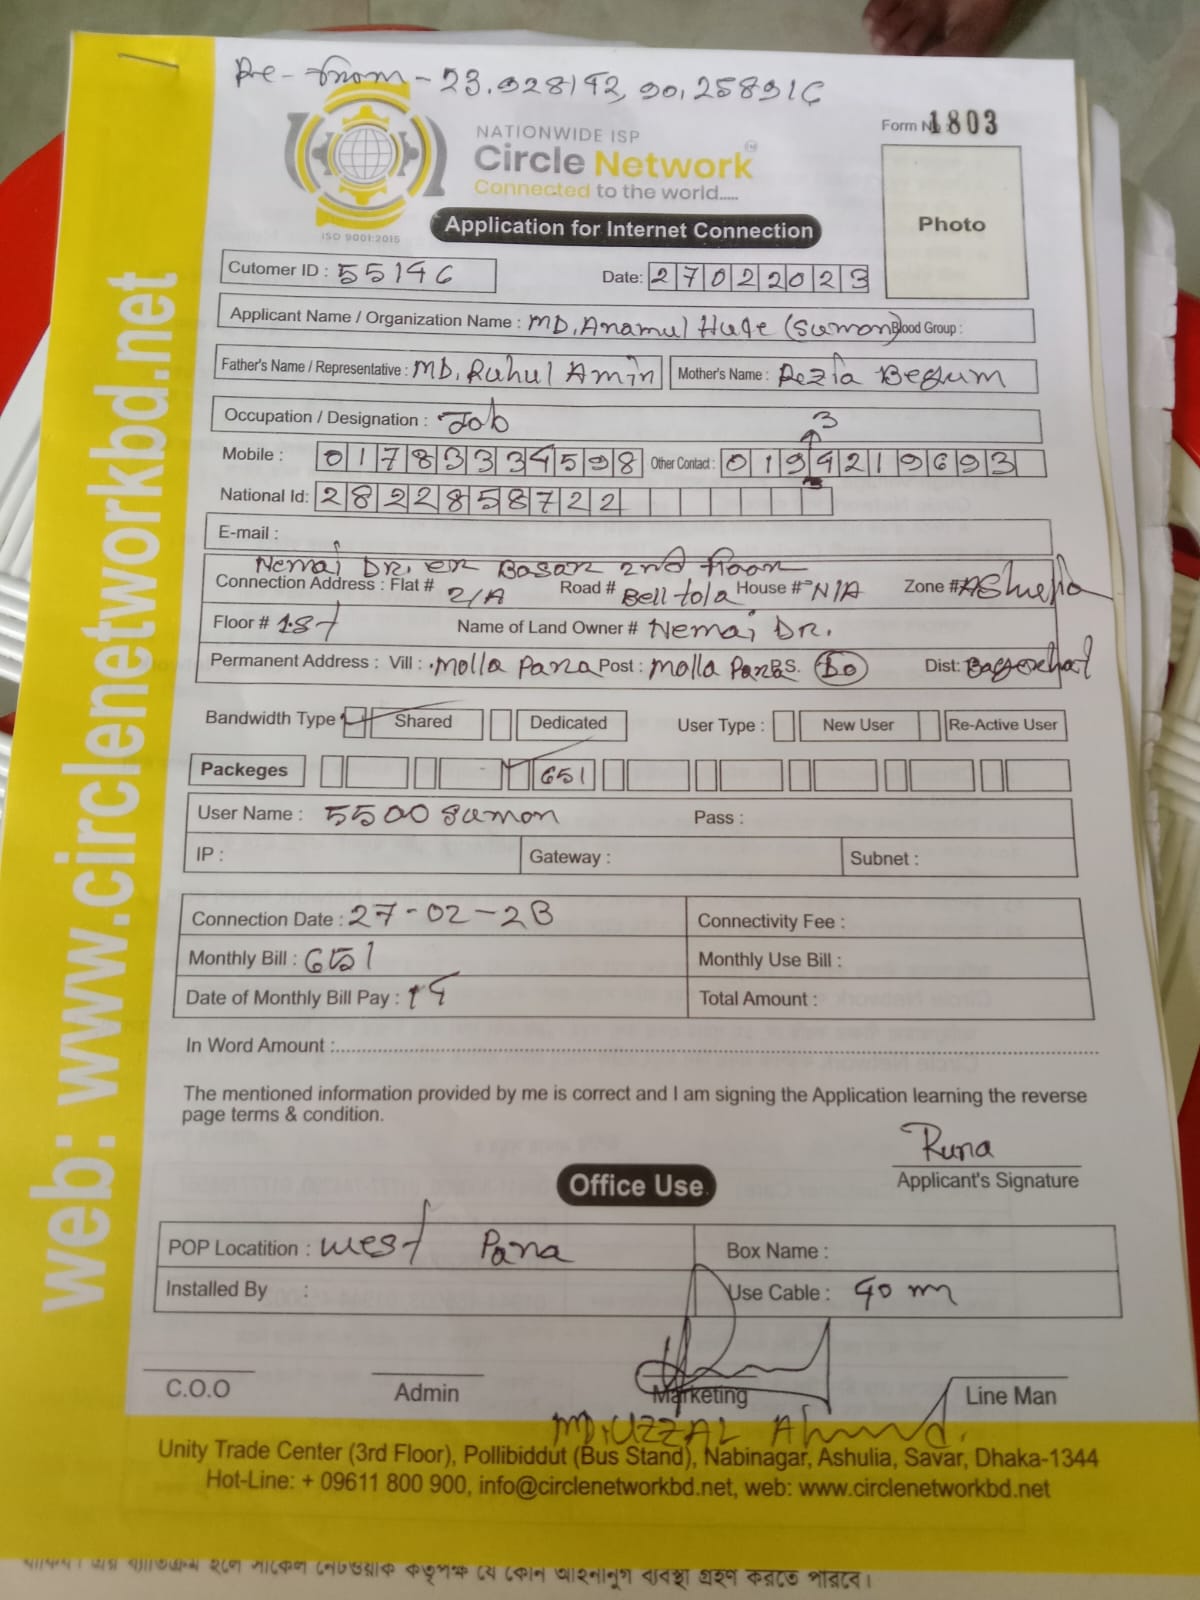 Re-from - 23.928142, 90.258916
Form No 1803
NATIONWIDE ISP
Circle Network
Connected to the world.....
ISO 9001:2015
Application for Internet Connection
Photo
Cutomer ID : 55146
Date: 27022023
Applicant Name / Organization Name : MD. Anamul Huqe (Sumon) Blood Group :
Father's Name / Representative : MD. Ruhul Amin Mother's Name : Rezia Begum
Occupation / Designation : Job
3
Mobile : 01783334598 Other Contact : 0194219693
National Id: 2822858722
E-mail :
Nemai DR. er Basar 2nd floor
Connection Address : Flat # 2/A Road # Bell tola House # N/A Zone # AShulia
Floor # 1st Name of Land Owner # Nemai DR.
Permanent Address : Vill : Molla Para Post : Molla Para P.S. Dist: Bagerhat
Bandwidth Type Shared Dedicated User Type : New User Re-Active User
Packeges 651
User Name : 5500 sumon Pass :
IP : Gateway : Subnet :
Connection Date : 27-02-23 Connectivity Fee :
Monthly Bill : 651 Monthly Use Bill :
Date of Monthly Bill Pay : Total Amount :
In Word Amount :
The mentioned information provided by me is correct and I am signing the Application learning the reverse
page terms & condition.
Runa
Applicant's Signature
Office Use
POP Locatition : West Para Box Name :
Installed By : Use Cable : 40 m
C.O.O Admin Marketing Line Man
MD. UZZAL Ahmed.
Unity Trade Center (3rd Floor), Pollibiddut (Bus Stand), Nabinagar, Ashulia, Savar, Dhaka-1344
Hot-Line: + 09611 800 900, info@circlenetworkbd.net, web: www.circlenetworkbd.net
web: www.circlenetworkbd.net
হলে সার্কেল নেটওয়ার্ক কতৃপক্ষ যে কোন আইনানুগ ব্যবস্থা গ্রহণ করতে পারবে।